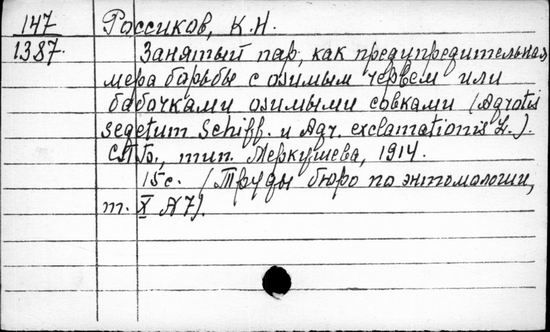 147 Россиков, К.Н.
1387. Занятый пар, как предупредительная
мера барьбы с озимым червем или
бабочками озимыми совками (Agrotis
segetum Schiff. и Agr. exclamationis L.).
СПБ., тип. Меркушева, 1914.
15с. (Труды бюро по энтомологии,
т. X №7).